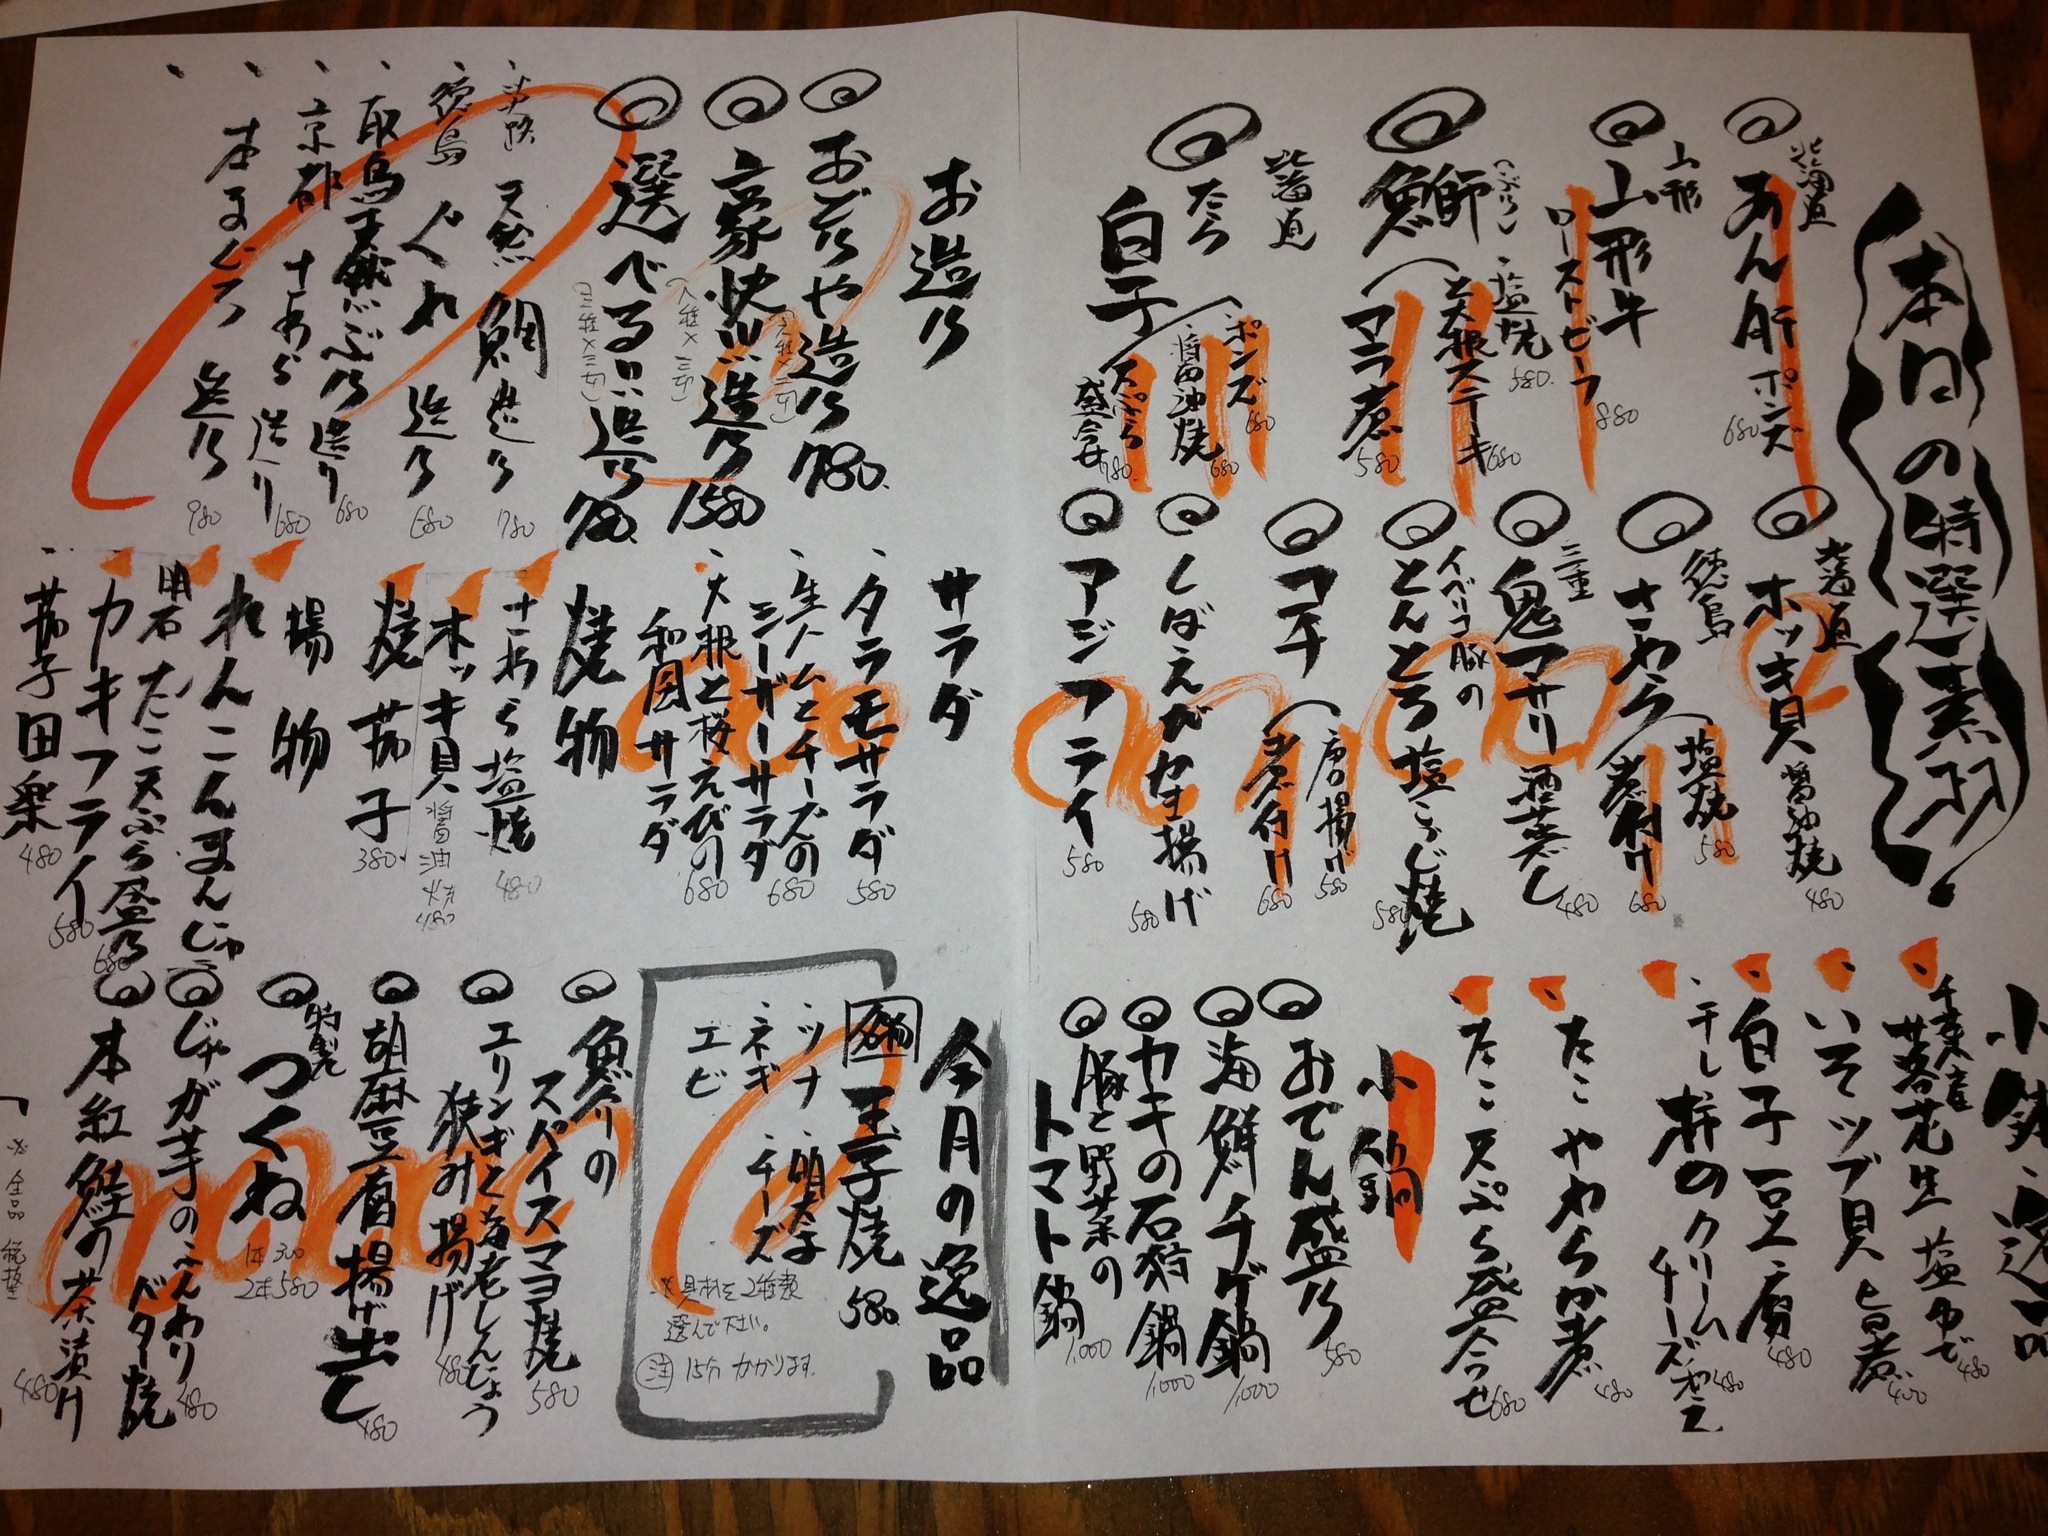 本日の特選素材!
北海道
あん肝ポンズ 680
山形
山形牛
ローストビーフ 880
鰤(ぶり)
・塩焼 580
・大根ステーキ 680
アラ煮 580
北海道
たら
白子
・ポンズ 680
・醤油焼 680
・天ぷら盛合せ 780
北海道
ホッキ貝 醤油焼 480
徳島
さわら
塩焼 580
煮付け 680
三重
鬼アサリ 酒蒸し 480
イベリコ豚の
とんとろ 塩こうじ焼 580
コチ
唐揚げ 580
煮付け 680
しばえび かき揚げ 580
アジフライ 580
小鉢・逸品
・千葉産 落花生 塩ゆで 480
・いそツブ貝 旨煮 400
・白子豆腐 480
・干し柿のクリームチーズ和え 480
・たこ やわらか煮 480
・たこ天ぷら盛合せ 680
小鍋
おでん盛り 580
海鮮チゲ鍋 1,000
カキの石狩鍋 1,000
豚と野菜の
トマト鍋 1,000
お造り
おどりや造り 780.
豪快!!造り 1580
(八種×三切)
選べる!!造り 780.
(三種×三切)
・淡路 天然 鯛 造り 780
・徳島 ぐれ 造り 680
・取鳥 天然ぶり 造り 680
・京都 さわら 造り 680
・本まぐろ 造り 980
サラダ
・タラモサラダ 580
・生ハムとチーズの
シーザーサラダ 680
・大根と桜えびの
和風サラダ 680
焼物
・さわら 塩焼 480
・ホッキ貝 醤油焼 480
・焼茄子 380
揚物
・れんこんまんじゅう
・明石たこ天ぷら盛り 680
・カキフライ 580
・茄子田楽 480
今月の逸品
玉子焼 580.
・ツナ ・明太子
・ネギ ・チーズ
・エビ
※具材を2種類
選んで下さい。
注 15分かかります。
魚介の
スパイスマヨ焼 580
エリンギと海老しんじょう
挟み揚げ 480
胡麻豆腐揚げ出し 480
特製
つくね
1本 300
2本 580
じゃが芋のふんわり
バター焼 480
本紅鮭の茶漬け 480
※全品 税抜